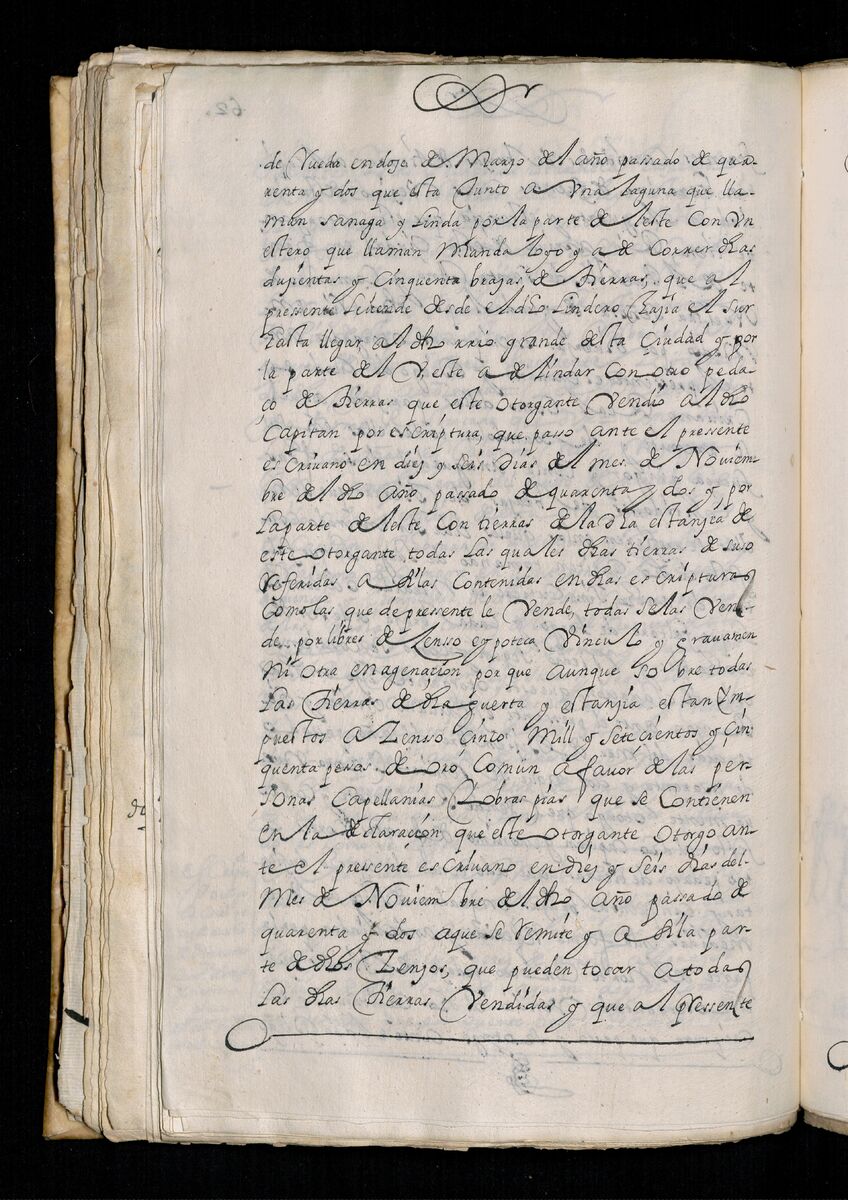 de Rueda en doze de Marzo del año passado de qua-
renta y dos que esta Junto a Vna laguna que lla-
man sanaga y linda por la parte de leste Con Vn
estero que llaman Mandaloyo y a de Correr dhas
duzientas y Cinquenta brazas de tierras, que al
pressente le vende desde el dho lindero hazia el sur
hasta llegar al dho rrio grande desta Ciudad y por
la parte del Veste a de lindar Con otro peda-
ço de tierras que este otorgante Vendio al dho
Capitan por escriptura, que passo ante el pressente
escriuano en diez y seis dias del mes de Nouiem-
bre del dho año passado de quarenta y dos y por
la parte de leste Con tierras de la dha estanzia de
este otorgante todas las quales dhas tierras de suso
referidas assi las Contenidas en dhas escripturas
Como las que de pressente le Vende, todas se las Ven-
de por libres de Zensso e ypoteca Vinculo y grauamen
ni otra enagenaçion por que aunque sobre todas
las tierras de dha guerta y estanzia estan ym-
puestos a Zenso Çinco Mill y setecientos y Çin-
quenta pesos de oro Comun a fauor de las per-
sonas Capellanias y obras pias que se Contienen
en la declaraçion que este otorgante otorgo an-
te el pressente escriuano en diez y seis dias del
Mes de Nouiembre del dho año passado de
quarenta y dos a que se remite y assi la par-
te de dhos Zensos, que pueden tocar a todas
las dhas tierras Vendidas y que al pressente